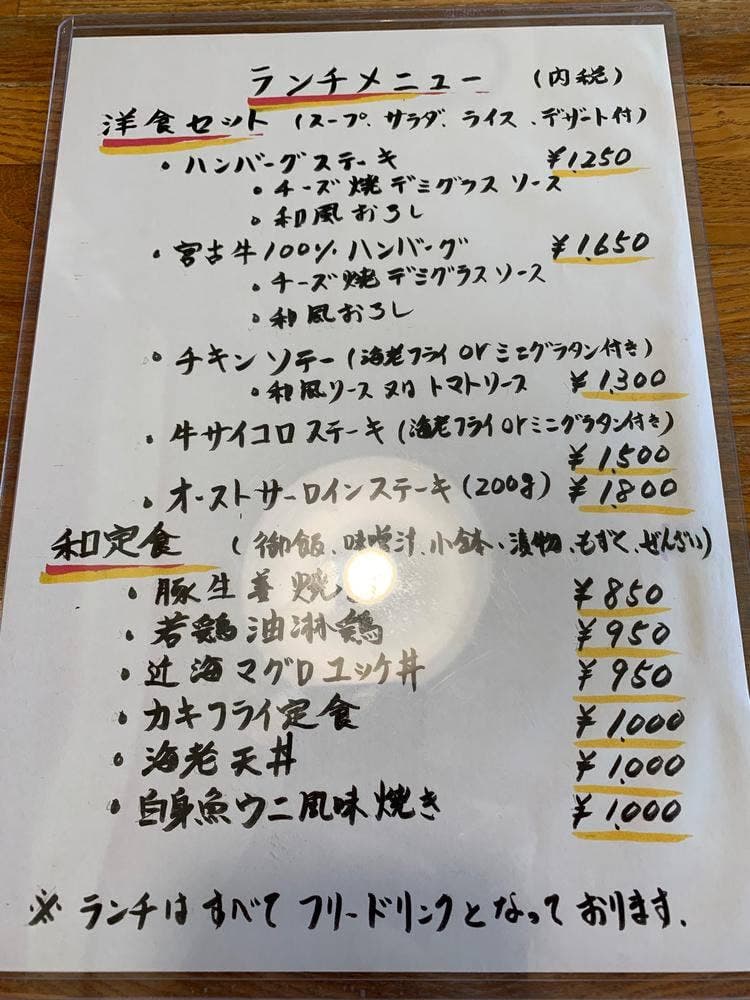 ランチメニュー (内税)
洋食セット (スープ、サラダ、ライス、デザート付)
・ハンバーグステーキ ¥1,250
・チーズ焼デミグラスソース
・和風おろし
・宮古牛100%ハンバーグ ¥1,650
・チーズ焼デミグラスソース
・和風おろし
・チキンソテー(海老フライorミニグラタン付き)
・和風ソース又はトマトソース ¥1,300
・牛サイコロステーキ(海老フライorミニグラタン付き)
¥1,500
・オーストサーロインステーキ(200g) ¥1,800
和定食 (御飯、味噌汁、小鉢、漬物、もずく、ぜんざい)
・豚生姜焼 ¥850
・若鶏油淋鶏 ¥950
・近海マグロユッケ丼 ¥950
・カキフライ定食 ¥1,000
・海老天丼 ¥1,000
・白身魚ウニ風味焼き ¥1,000
※ランチはすべてフリードリンクとなっております.